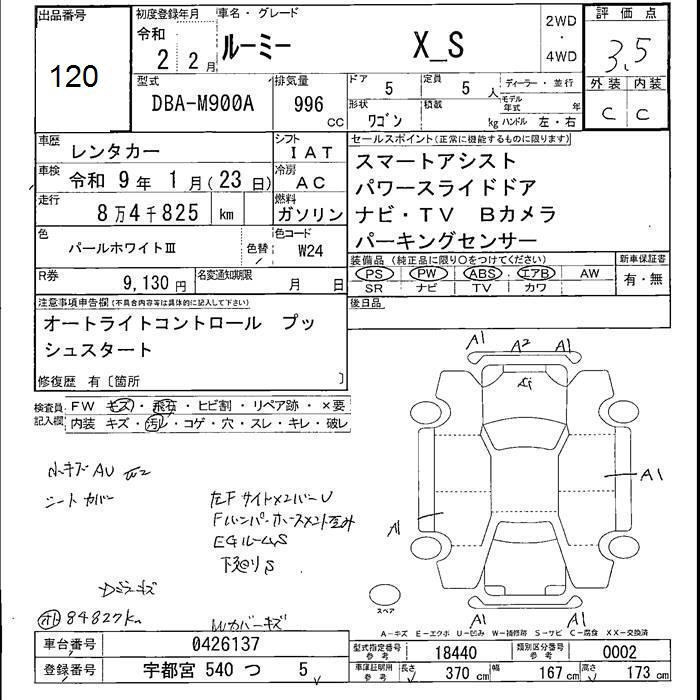 出品番号
120
初度登録年月
令和
2 2月
車名・グレード
ルーミー X_S
2WD
・
4WD
評価点
3.5
外装 内装
C C
型式
DBA-M900A
排気量
996
CC
ドア 5
定員 5 人
ディーラー・並行
形状
ワゴン
積載
kg
モデル年式 年
ハンドル 左・右
車歴
レンタカー
シフト
IAT
車検 令和 9年 1月(23日)
冷房
AC
走行
8万4千825 km
燃料
ガソリン
色
パールホワイトⅢ
色替
色コード
W24
R券
9,130円
名変通知期限
月 日
セールスポイント(正常に機能するものに限ります)
スマートアシスト
パワースライドドア
ナビ・TV Bカメラ
パーキングセンサー
装備品(純正品に限り○をつけてください)
PS PW ABS エアB AW
SR ナビ TV カワ
新車保証書
有・無
後日品
注意事項申告欄(不具合内容等は具体的に記入して下さい)
オートライトコントロール プッ
シュスタート
修復歴 有〔箇所 〕
検査員記入欄
FW キズ・飛石・ヒビ割・リペア跡・×要
内装 キズ・汚レ・コゲ・穴・スレ・キレ・破レ
A1 A2 A1
A1
A1
A1 A1
小キズ AU
シートカバー
左F サイドメンバー U
EGルームS
下廻りS
84827km
スペア
A-キズ E-エクボ U-凹み W-補修跡 S-サビ C-腐食 XX-交換済
車台番号 0426137
登録番号 宇都宮 540 つ 5
型式指定番号
参考
18440
類別区分番号
参考
0002
車庫証明用
参考
長さ 370 cm 幅 167 cm 高さ 173 cm